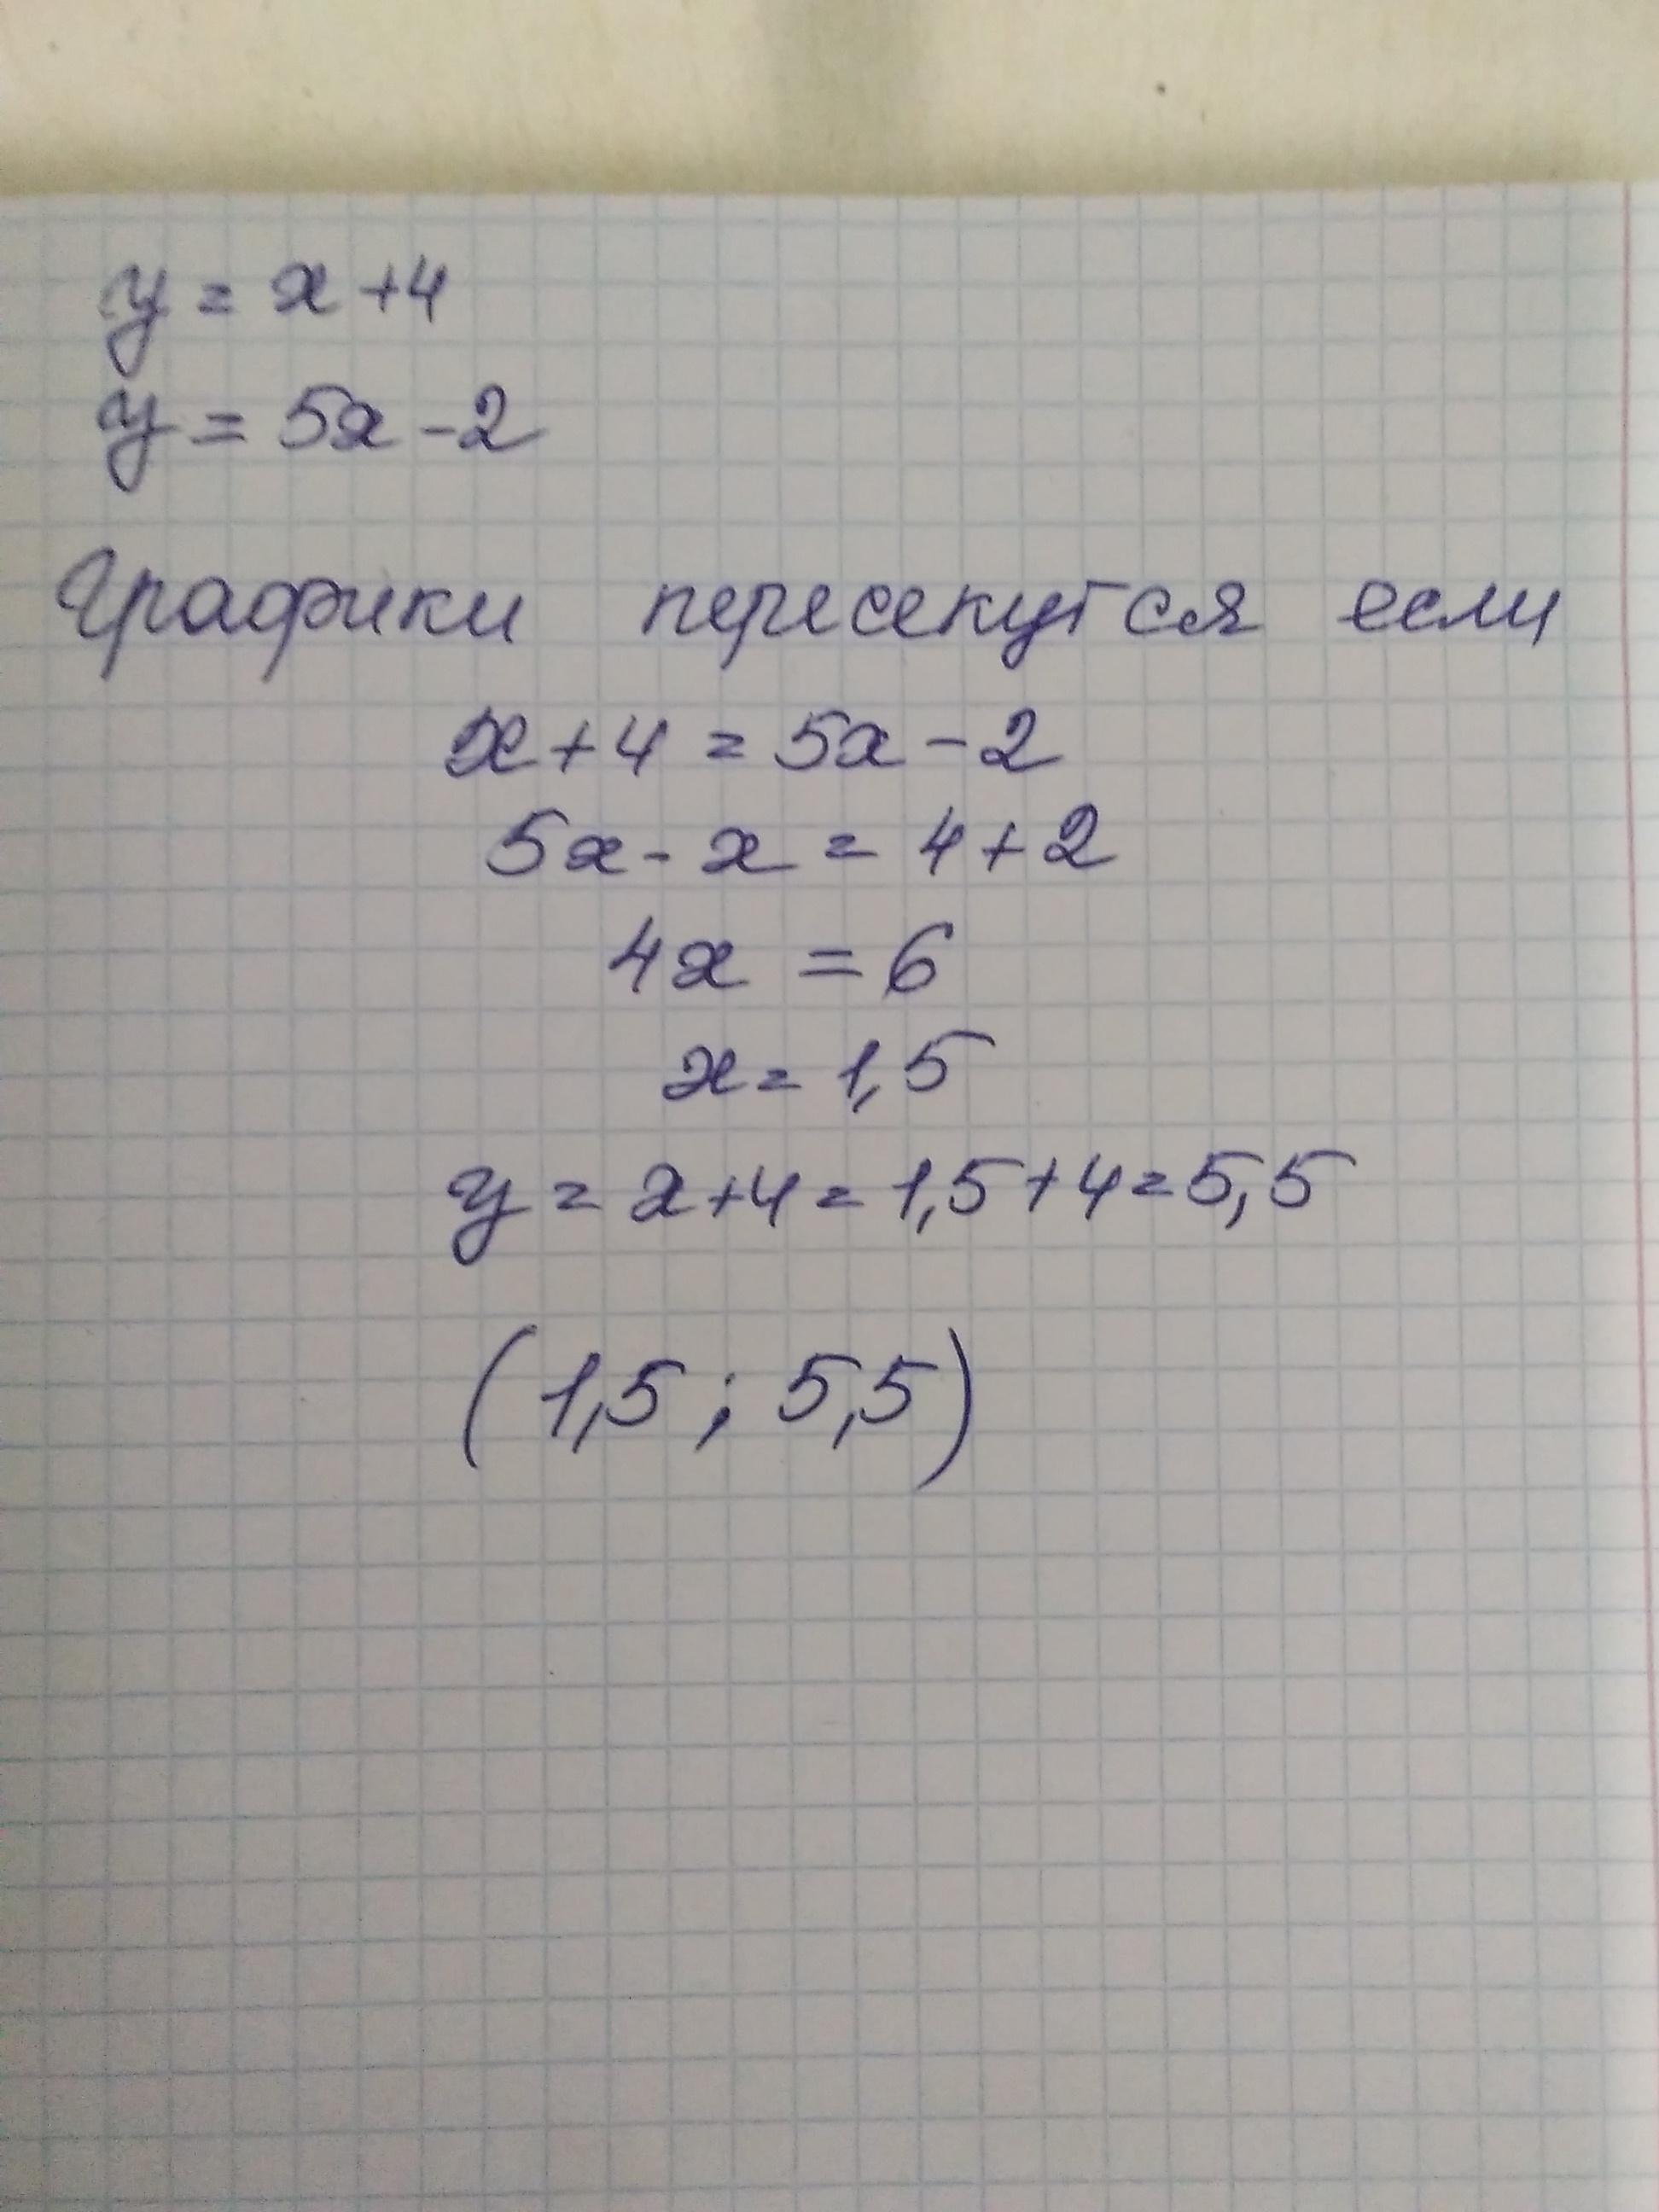 y = x + 4
y = 5x - 2
Графики пересекутся если
x + 4 = 5x - 2
5x - x = 4 + 2
4x = 6
x = 1,5
y = x + 4 = 1,5 + 4 = 5,5
(1,5 ; 5,5)